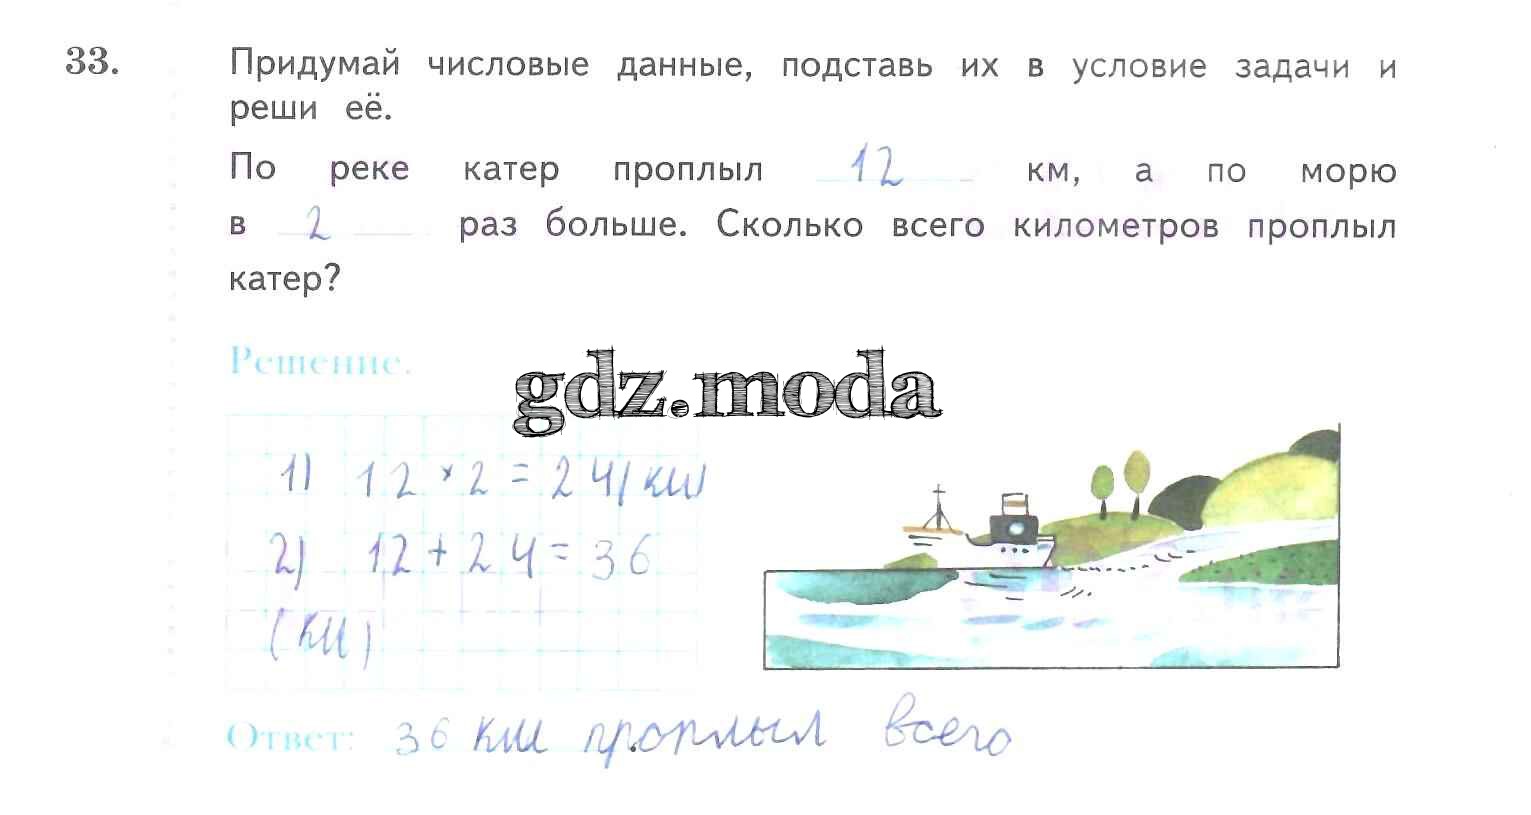 33. Придумай числовые данные, подставь их в условие задачи и
реши её.
По реке катер проплыл 12 км, а по морю
в 2 раз больше. Сколько всего километров проплыл
катер?
Решение.
gdz.moda
1) 12 × 2 = 24(км)
2) 12 + 24 = 36
(км)
Ответ: 36 км проплыл всего